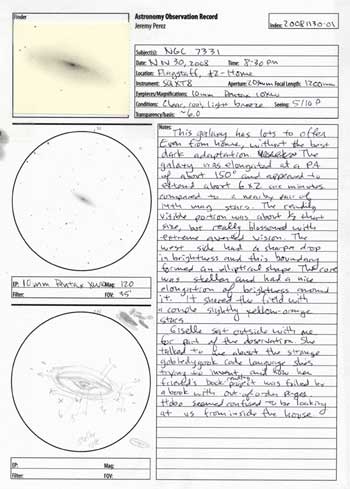 Finder
Astronomy Observation Record
Jeremy Perez
Index: 20081130-01
Subject(s): NGC 7331
Date: Nov 30, 2008 Time: 8:30 PM
Location: Flagstaff, AZ - Home
Instrument: SQXT8 Aperture: 203mm Focal Length: 1200mm
Eyepieces/Magnifications: 10mm Pentax 10XW
Conditions: Clear, cool, light breeze Seeing: 5/10 P
Transparency/basis: ~6.0
Notes:
This galaxy has lots to offer.
Even from home, without the best
dark adaptation. The
galaxy was elongated at a PA
of about 150° and appeared to
extend about 6x2 arc minutes
compared to a nearby pair of
14th mag stars. The readily
visible portion was about ½ that
size, but really blossomed with
extreme averted vision. The
west side had a sharp drop
in brightness and this boundary
formed an elliptical shape. The core
was stellar and had a nice
elongation of brightness around
it. It shared the field with
a couple slightly yellow-orange
stars
Giselle sat outside with me
for part of the observation. She
talked to me about the strange
gobbledygook code language she's
trying to invent, and how her
friend's book reading project was foiled by
a book with out-of-order pages.
Hobo seemed confused to be looking
at us from inside the house
EP: 10mm Pentax XW Mag: 120
Filter: FOV: 35'
EP: Mag:
Filter: FOV: